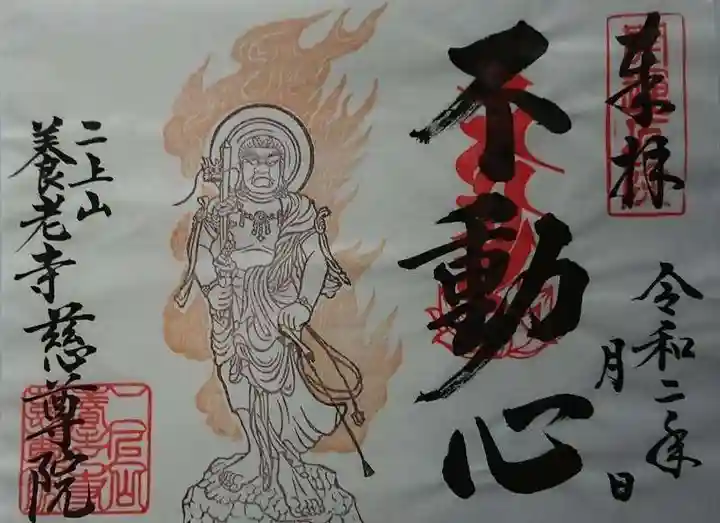 奉拝
令和二年
月 日
不動心
二上山
養老寺慈尊院